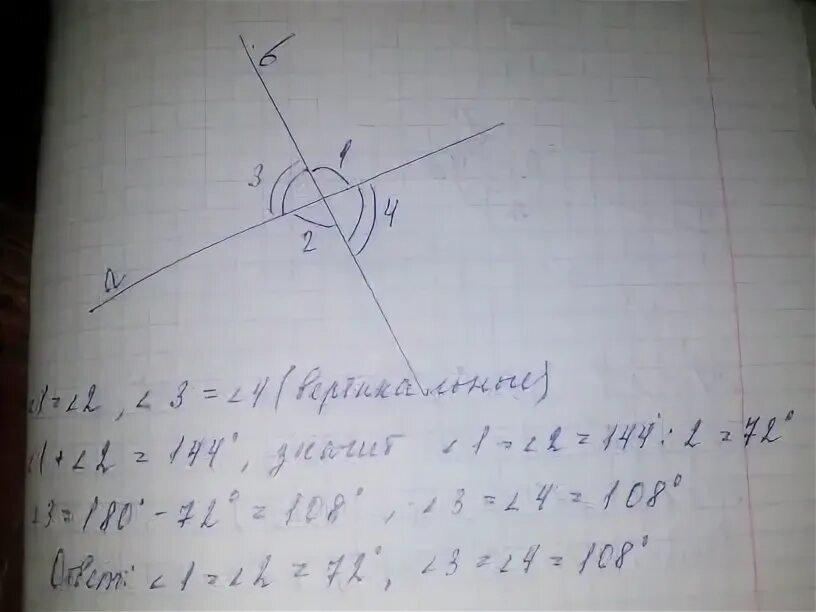 б
1
3
4
2
а
∠1 = ∠2, ∠3 = ∠4 (вертикальные)
∠1 + ∠2 = 144°, значит ∠1 = ∠2 = 144° : 2 = 72°
∠3 = 180° - 72° = 108°, ∠3 = ∠4 = 108°
Ответ: ∠1 = ∠2 = 72°, ∠3 = ∠4 = 108°